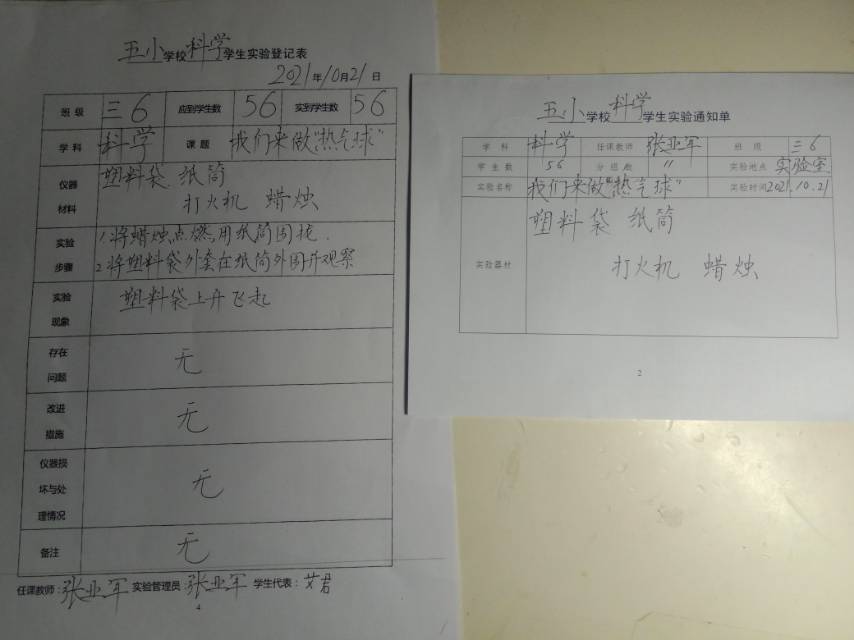 五小学校科学学生实验登记表
2021年10月21日
班级 三6 应到学生数 56 实到学生数 56
学科 科学 课题 我们来做“热气球”
仪器材料 塑料袋 纸筒
打火机 蜡烛
实验步骤 1.将蜡烛点燃,用纸筒围拢.
2.将塑料袋外套在纸筒外围并观察
实验现象 塑料袋上升飞起
存在问题 无
改进措施 无
仪器损坏与处理情况 无
备注 无
任课教师:张业军 实验管理员:张业军 学生代表:艾君
4
五小学校科学学生实验通知单
学科 科学 任课教师 张业军 班级 三6
学生数 56 分组数 〃 实验地点 实验室
实验名称 我们来做“热气球” 实验时间 2021.10.21
实验器材 塑料袋 纸筒
打火机 蜡烛
2